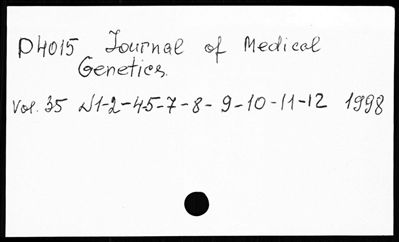 D4015 Journal of Medical
Genetics.
Vol. 35 N1-2-4-5-7-8-9-10-11-12 1998